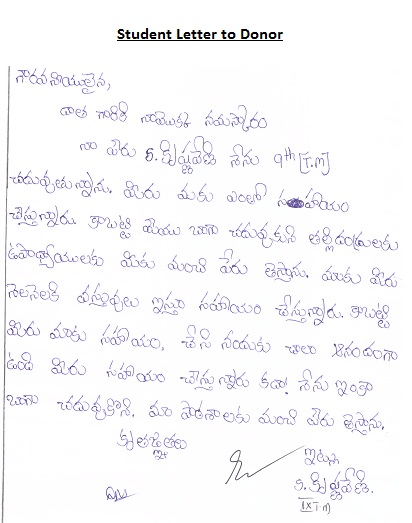 Student Letter to Donor
గౌరవనీయులైన,
దాత గారికి నాయొక్క నమస్కారం
నా పేరు S. కృష్ణవేణి నేను 9th [T.M]
చదువుతున్నాను. మీరు మకు ఎంతో సహాయం
చేస్తున్నారు. కాబట్టి మేము బాగా చదువుకుని తల్లిదండ్రులకు
ఉపాధ్యాయులకు మీకు మంచి పేరు తెస్తాను. మాకు మీరు
నెలనెలకి వస్తువులు ఇస్తూ సహాయం చేస్తున్నారు. కాబట్టి
మీరు మాకు సహాయం. చేసి నందుకు చాలా ఆనందంగా
ఉంది మీరు సహాయం చేస్తున్నారు కదా! నేను ఇంకా
బాగా చదువుకొని. మా పాఠశాలకు మంచి పేరు తెస్తాను.
కృతజ్ఞతలు
ఇట్లు
S. కృష్ణవేణి.
IX T.M